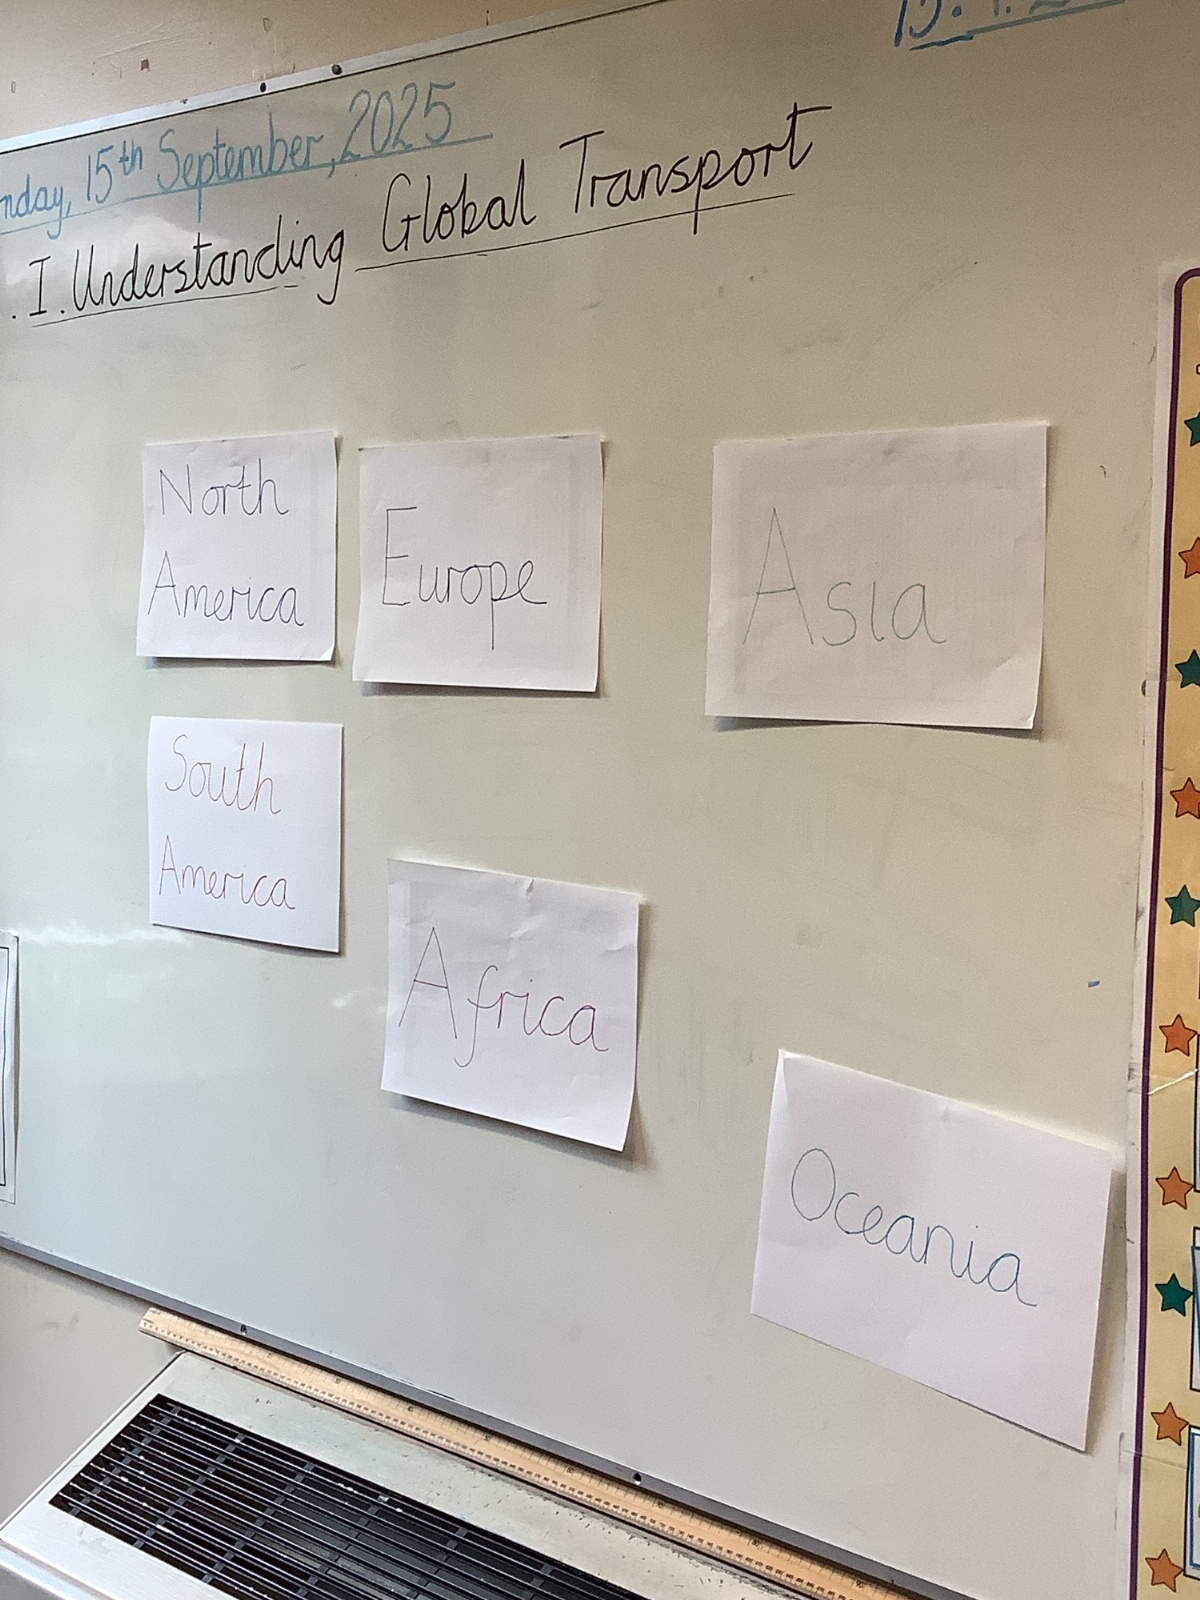 nday, 15th September, 2025
. I. Understanding Global Transport
North
America
Europe
Asia
South
America
Africa
Oceania